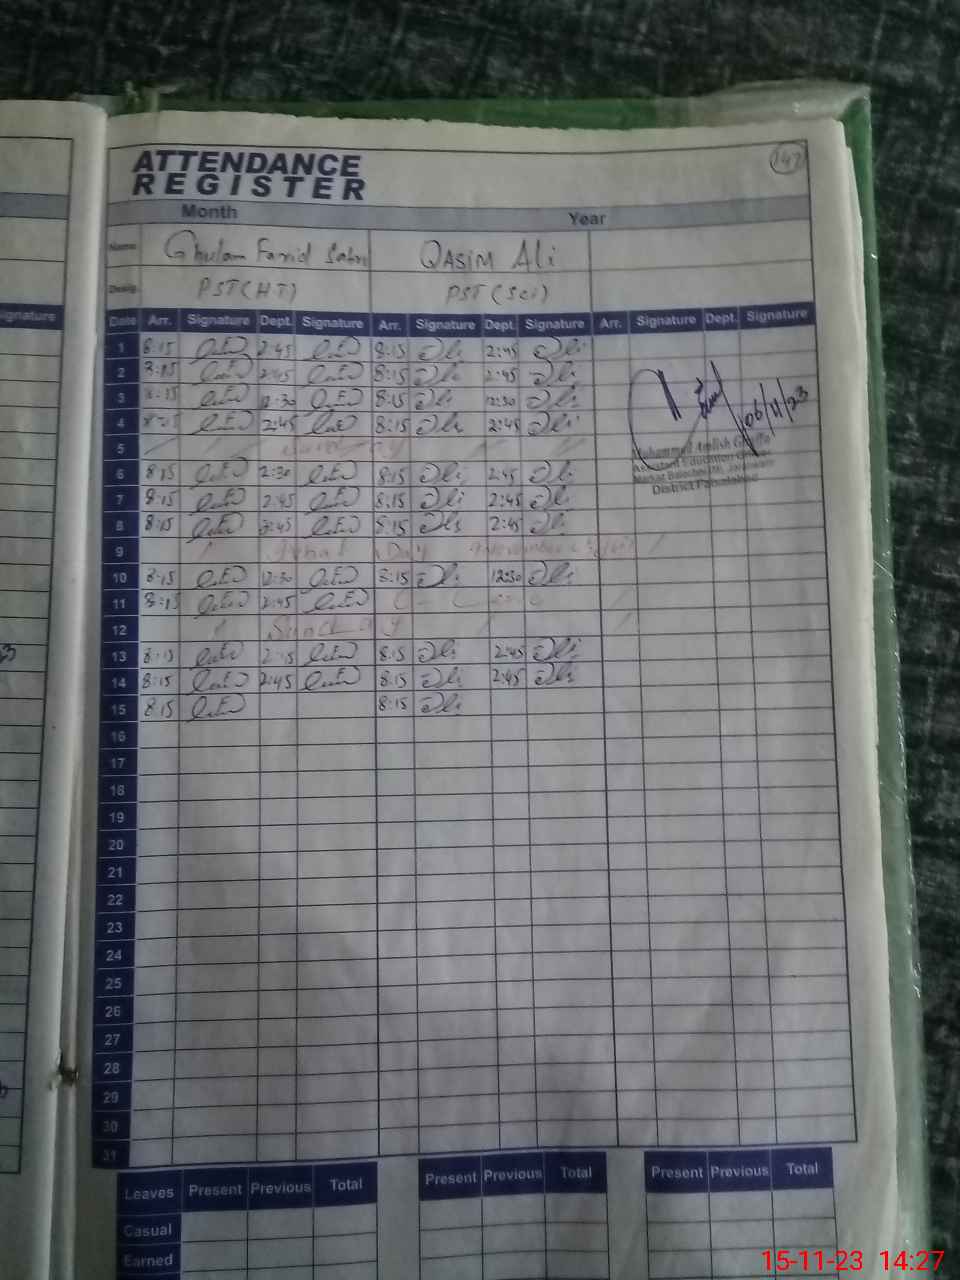 147
ATTENDANCE
REGISTER
Month Year
Name Ghulam Farid Sabri QASIM Ali
Desig. PST(HT) PST (Sci)
ignature
Date Arr. Signature Dept. Signature Arr. Signature Dept. Signature Arr. Signature Dept. Signature
1 8:15 2:45 8:15 Ali 2:45 Ali
2 8:15 2:45 8:15 Ali 2:45 Ali
3 8:15 12:30 8:15 Ali 12:30 Ali
4 8:15 2:45 8:15 Ali 2:45 Ali
5 Sunday
06/11/23
Muhammad
Assistant Education Officer
Markaz
District Faisalabad
6 8:15 2:30 8:15 Ali 2:45 Ali
7 8:15 2:45 8:15 Ali 2:45 Ali
8 8:15 2:45 8:15 Ali 2:45 Ali
9 Iqbal Day 9 November
10 8:15 12:30 8:15 Ali 12:30 Ali
11 8:15 2:45 C- Leave
12 Sunday
13 8:15 2:45 8:15 Ali 2:45 Ali
14 8:15 2:45 8:15 Ali 2:45 Ali
15 8:15 8:15 Ali
16
17
18
19
20
21
22
23
24
25
26
27
28
29
30
31
Leaves Present Previous Total Present Previous Total Present Previous Total
Casual
Earned
15-11-23 14:27